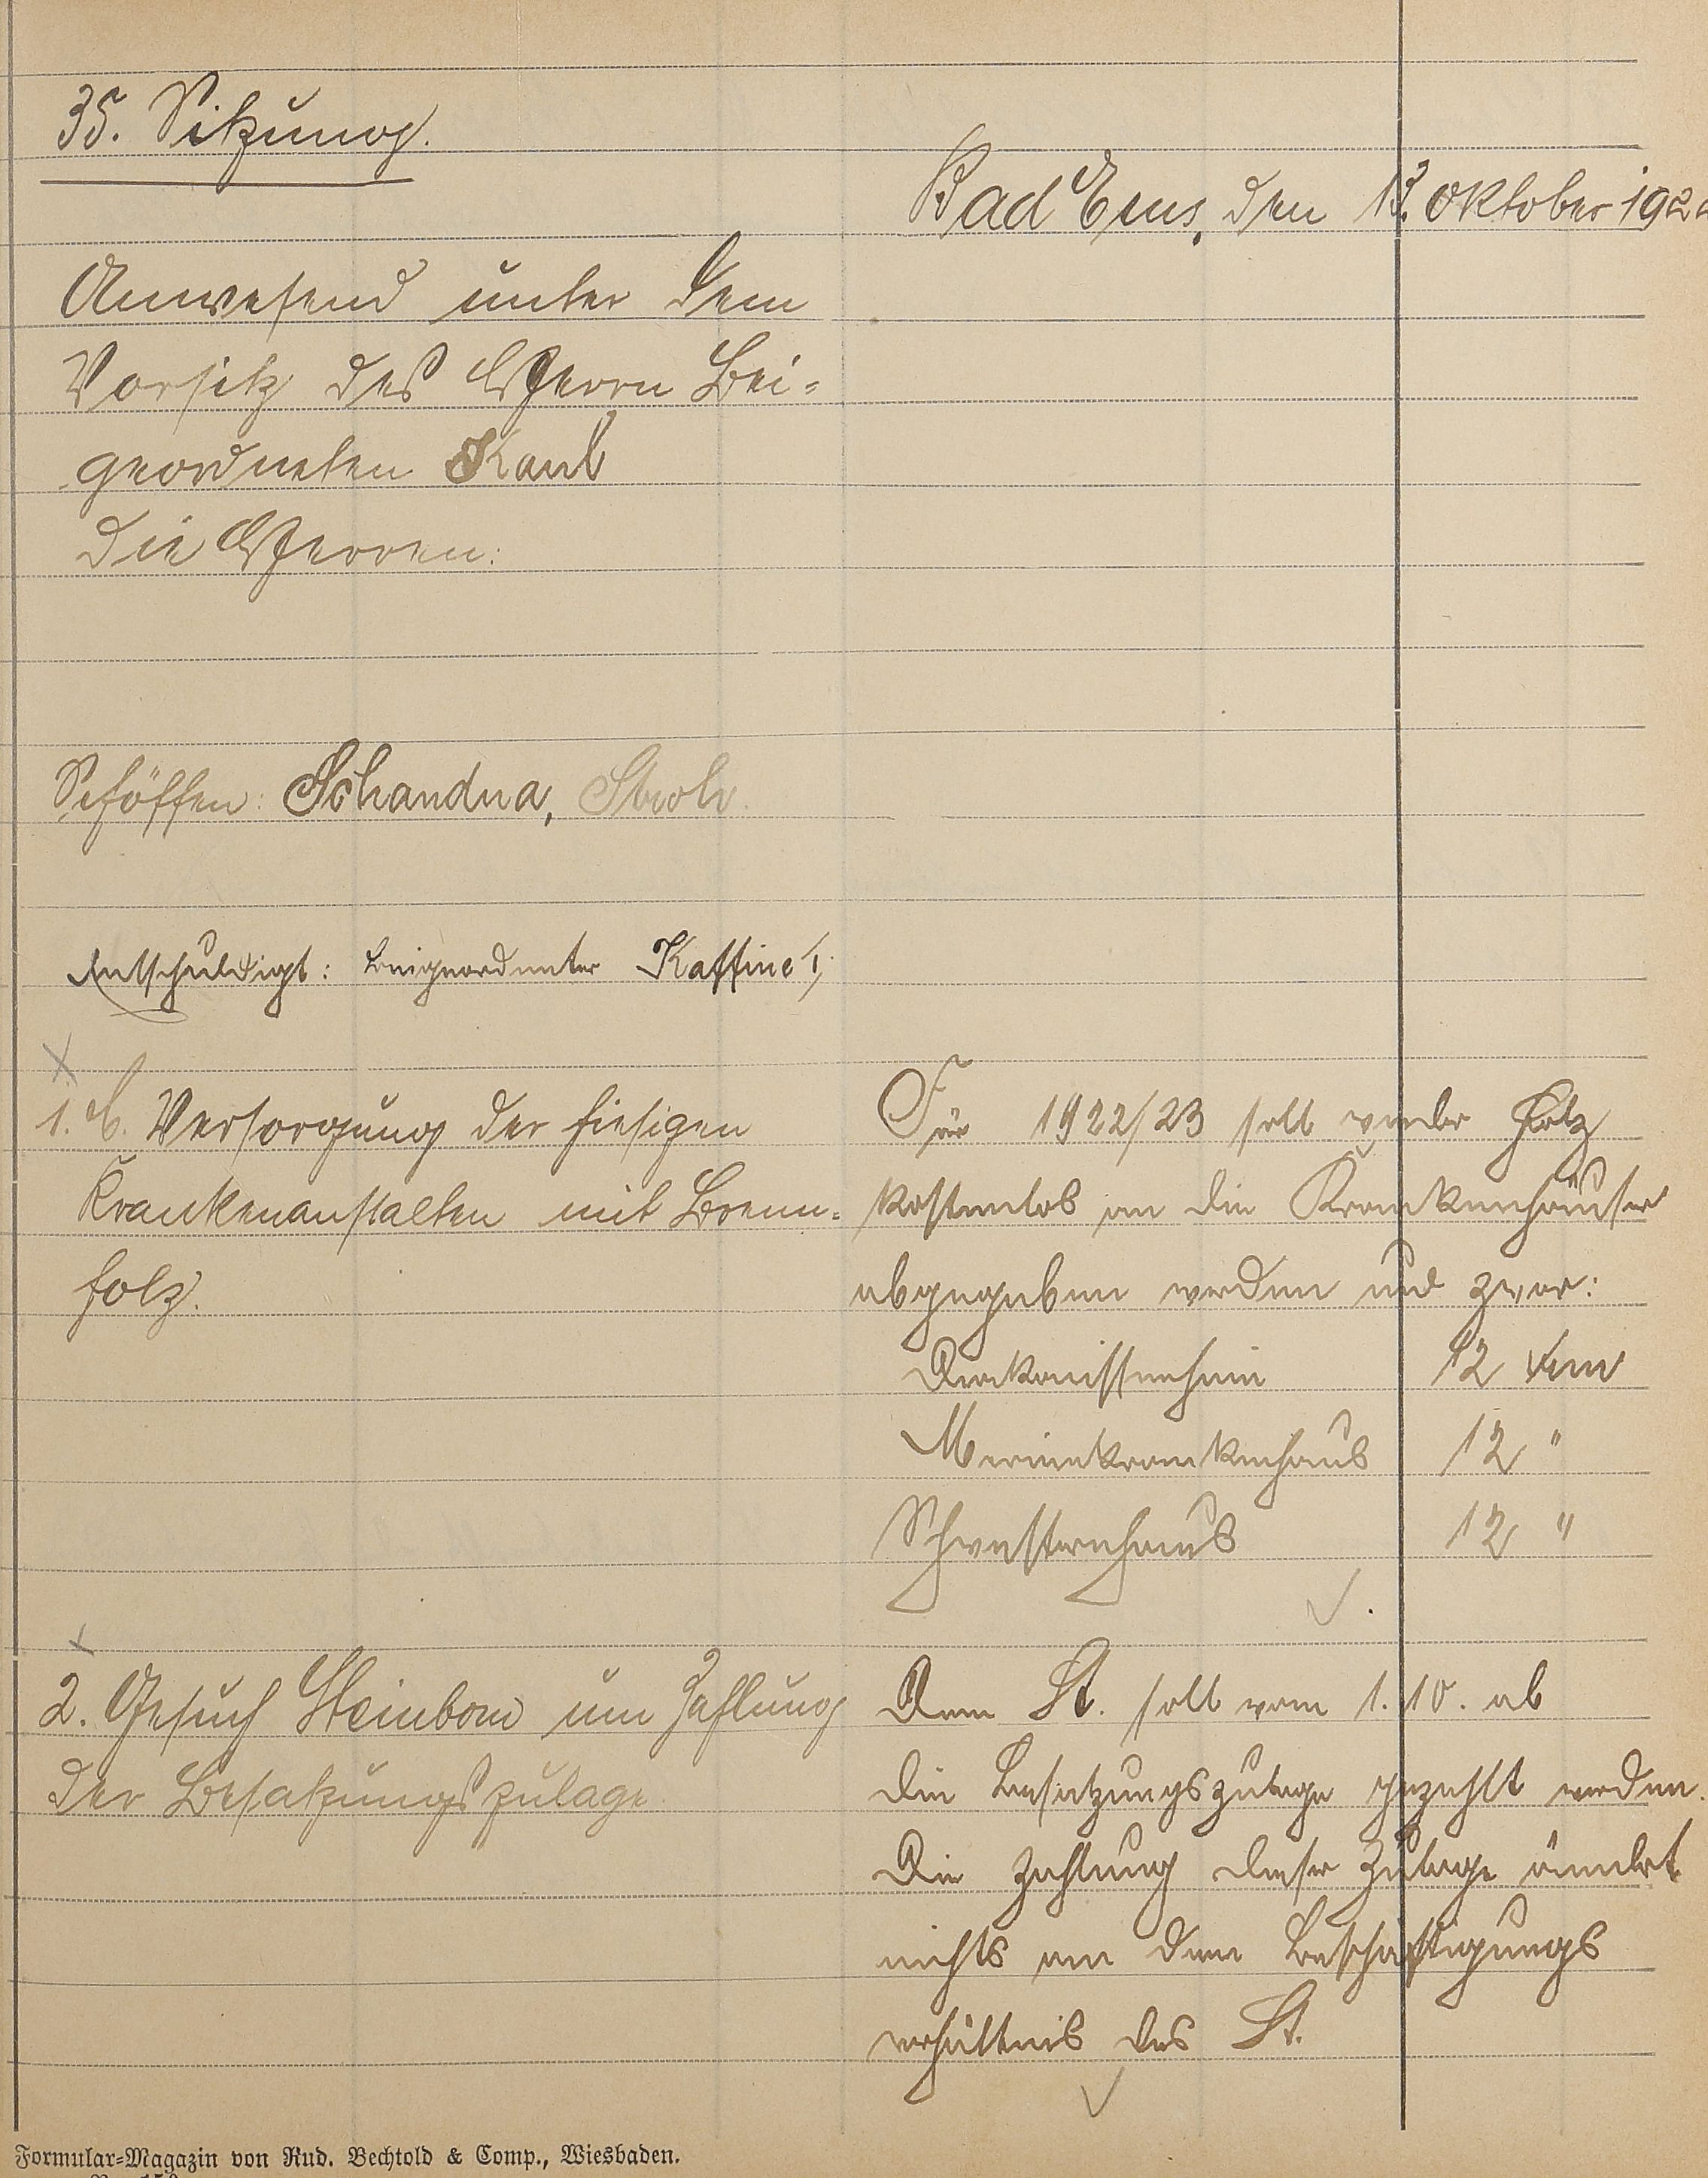 35. Sitzung.
Bad Ems, den 13. Oktober 192
Anwesend unter dem
Vorsitz des Herrn Bei-
geordneten Kaul
Die Herren:
Schöffen: Schandua, Stroh.
Entschuldigt: Beigeordneter Kaffine I,
1. Versorgung der hiesigen
Krankenanstalten mit Brenn-
holz.
Für 1922/23 soll wieder Holz
kostenlos an die Krankenhäuser
abgegeben werden und zwar:
Diakonissenheim 12 
Marienkrankenhaus 12 "
Schwesternhaus 12 "
2. Gesuch Steinborn um Zahlung
der Besatzungszulage.
Dem St. soll vom 1.10. ab
die Besatzungszulage gezahlt werden.
Die Zahlung dieser Zulage ändert
nichts an dem Beschäftigungs
verhältnis des St.
Formular-Magazin von Rud. Bechtold & Comp., Wiesbaden.